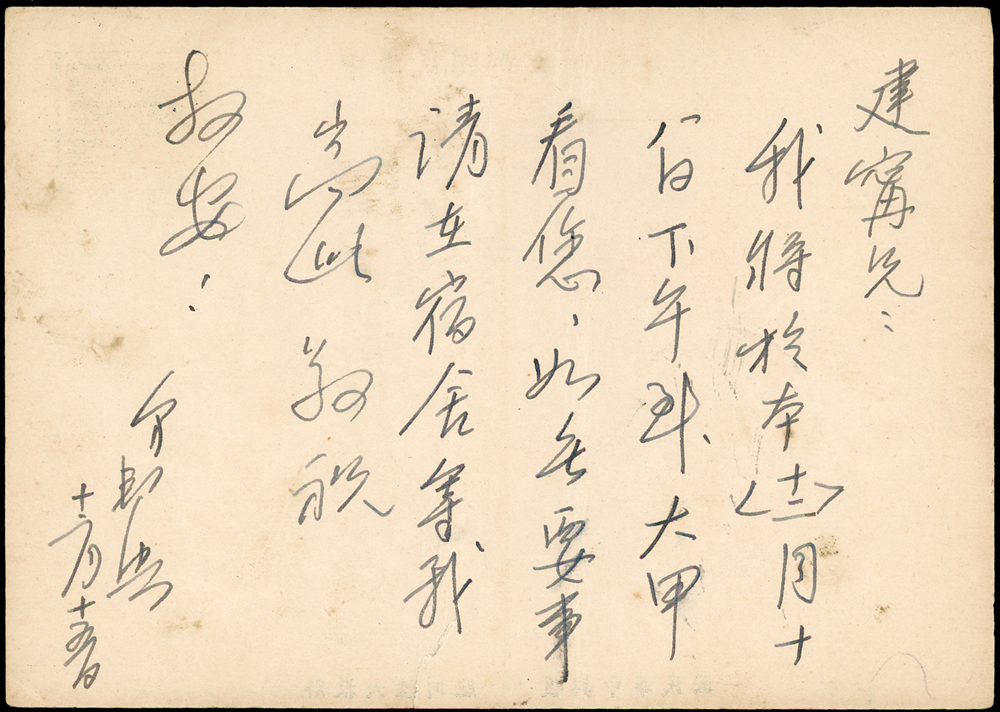 建甯兄：
我將於本<十二>月十
八日下午到大甲
看您，如無要事
請在宿舍等我
耑此 敬祝
教安！
弟
十二月十五日